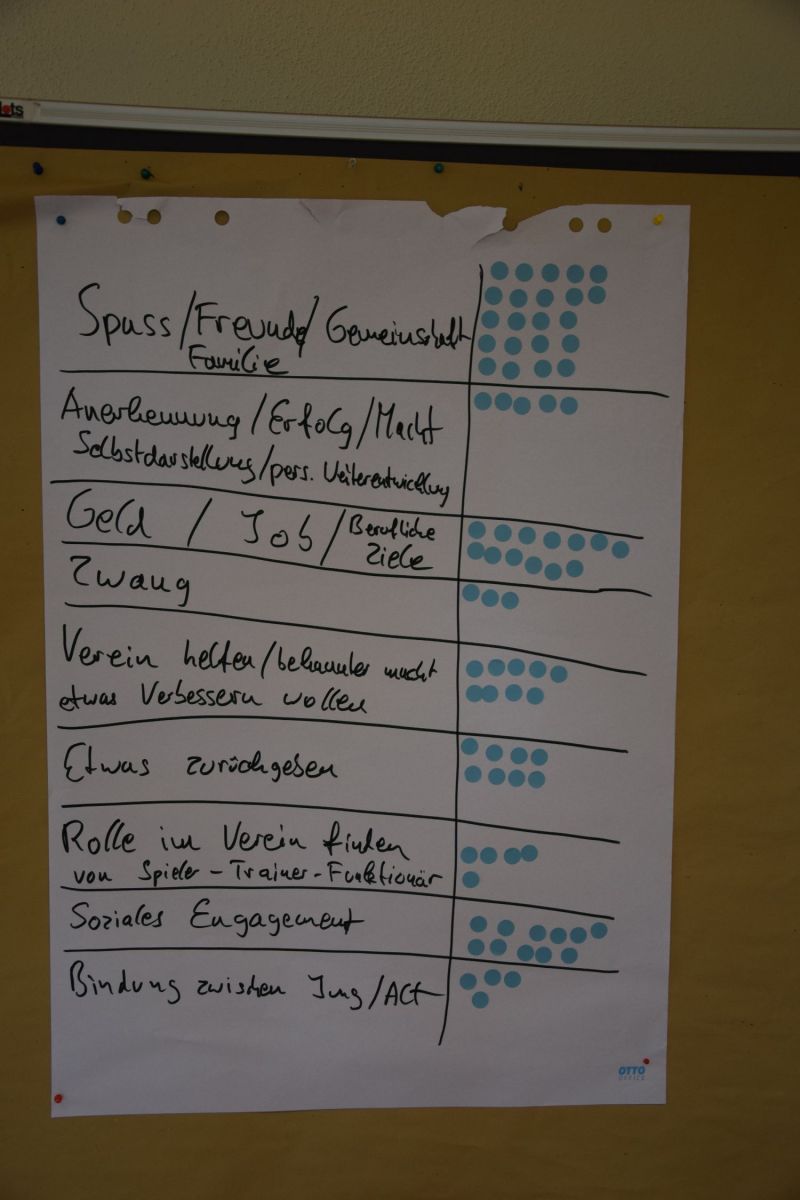 lots
Spass/Freunde/Gemeinschaft
Familie
Anerkennung/Erfolg/Macht
Selbstdarstellung/pers. Weiterentwicklung
Geld / Job / Berufliche
Ziele
Zwang
Verein helfen/bekannter macht
etwas Verbessern wollen
Etwas zurückgeben
Rolle im Verein finden
von Spieler-Trainer-Funktionär
Soziales Engagement
Bindung zwischen Jung/Alt
OTTO
OFFICE